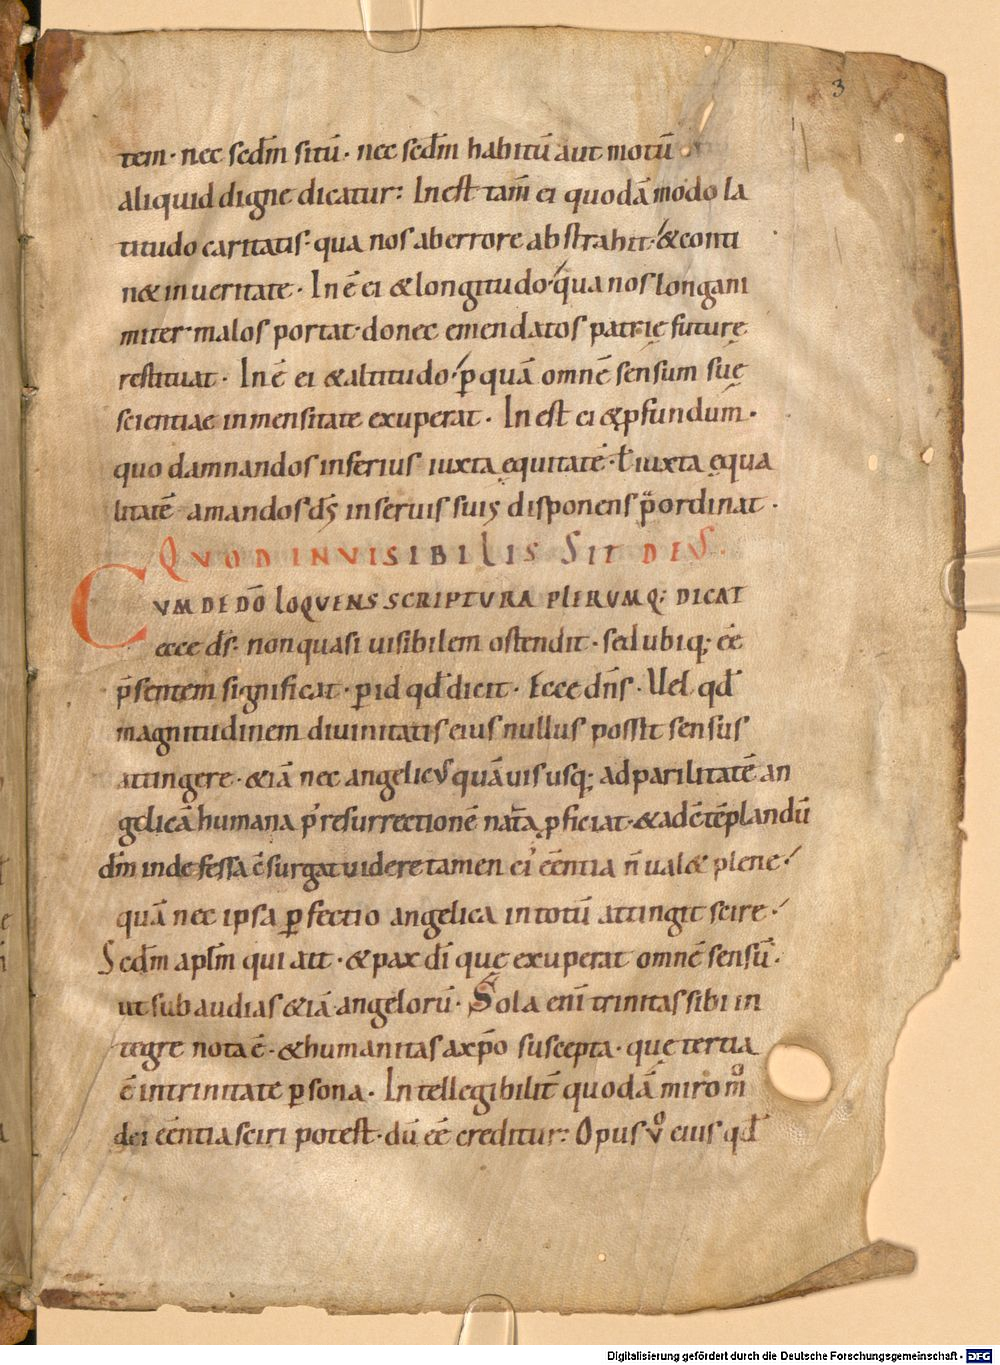 3
tem · nec sedm̄ sitū · nec sedm̄ habitū aut motū
aliquid digne dicatur: Inest tam̄ ei quodā modo la
titudo caritatis · qua nos ab errore abstrahit · & conti
n& in ueritate · Inē ei & longitudo · qua nos longani
miter · malos portat · donec emendatos patrię futurę
restituat · Inē ei & altitudo · ꝑ quā omnē sensum suę
scientiae inmensitate exuperat · Inest ei & ꝓfundum ·
quo damnandos inferius iuxta ęquitatē · ł iuxta ęqua
litatē amandos ds̄ in seruis suis disponens p̄ordinat ·
QVOD INVISIBILIS SIT DEVS ·
CVM DE DŌ LOQVENS SCRIPTVRA PLERVMQ; DICAT
ecce ds̄ · non quasi uisibilem ostendit · sed ubiq; eē
p̄sentem significat · ꝑ id qđ dicit · Ecce dn̄s · Uel qđ
magnitudinem diuinitatis eius nullus possit sensus
attingere · &iā nec angelicus quāuis usq; ad parilitatē an
gelicā humana p̄ resurrectionē nat̄a ꝓficiat · & ad c̄tēplandū
dm̄ indefessa c̄surgat uidere tamen ei eēntia n̄ ual& plene ·
quā nec ipsa ꝑfectio angelica in totū attingit scire ·
Sedm̄ aplm̄ qui ait · & pax dī quę exuperat omnē sensū ·
ut subaudias &iā angelorū · Sola enī trinitas sibi in
tegre nota ē · & humanitas a xp̄o suscepta · quę tertia
ē in trinitate ꝑsona · Intellegibilit̄ quodā miro m̊
dei eēntia sciri potest · dū eē creditur: Opus v̊ eius qđ
Digitalisierung gefördert durch die Deutsche Forschungsgemeinschaft - DFG